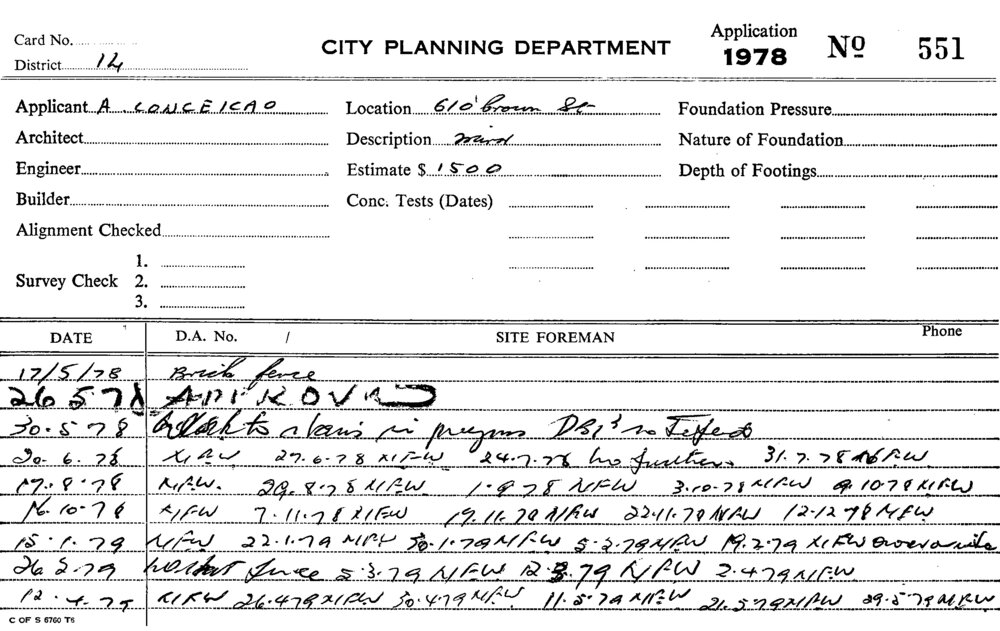 Card No.
CITY PLANNING DEPARTMENT
Application
1978 Nº 551
District 14
Applicant A. CONCEICAO Location 610 Crown St Foundation Pressure
Architect Description Nature of Foundation
Engineer Estimate $ 1500 Depth of Footings
Builder Conc. Tests (Dates)
Alignment Checked
1.
Survey Check 2.
3.
DATE D.A. No. / SITE FOREMAN Phone
17/5/78 Brick fence
26 5 78 APPROVED
30.5.78 in progress
20.6.78 N.F.W. 27.6.78 N.F.W 24.7.78 no further 31.7.78 N.F.W.
17.8.78 N.F.W. 29.8.78 N.F.W 1.9.78 N.F.W 3.10.78 N.F.W 9.10.78 N.F.W
16.10.78 N.F.W 7.11.78 N.F.W 19.11.78 N.F.W 22.11.78 N.F.W 12.12.78 N.F.W
15.1.79 N.F.W 22.1.79 N.F.W 30.1.79 N.F.W 5.2.79 N.F.W 19.2.79 N.F.W
26.2.79 fence 5.3.79 N.F.W 12.3.79 N.F.W 2.4.79 N.F.W.
12.4.79 N.F.W 26.4.79 N.F.W 30.4.79 N.F.W. 11.5.79 N.F.W 21.5.79 N.F.W 29.5.79 N.F.W
C OF S 6760 T6